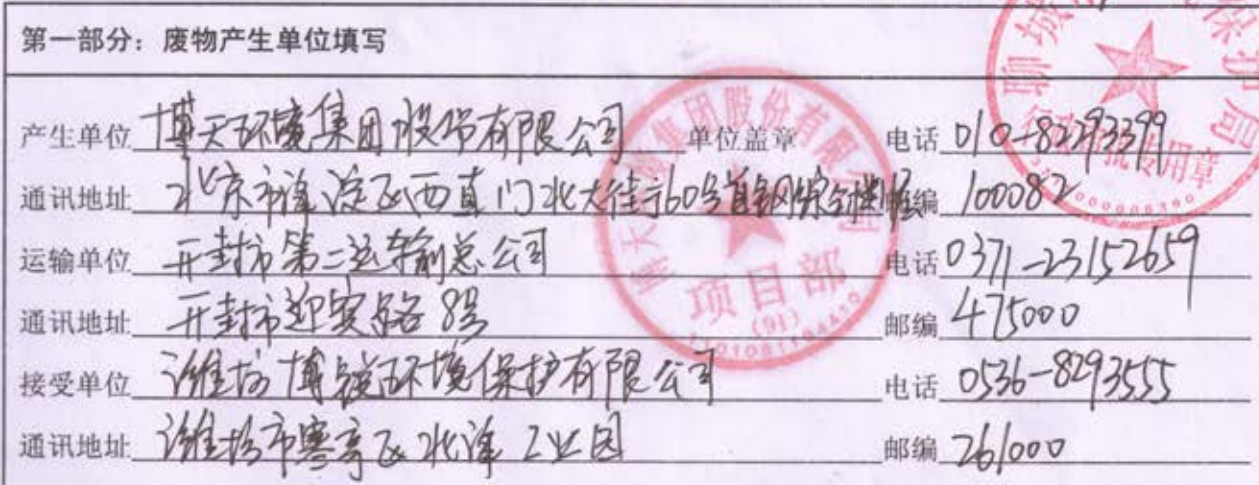 第一部分：废物产生单位填写
产生单位 博天环境集团股份有限公司 单位盖章 电话 010-82293399
通讯地址 北京市海淀区西直门北大街60号首钢综合楼 邮编 100082
运输单位 开封市第二运输总公司 电话 0371-23152659
通讯地址 开封市迎宾路8号 邮编 475000
接受单位 潍坊博锐环境保护有限公司 电话 0536-8293555
通讯地址 潍坊市寒亭区北海工业园 邮编 261000
博天环境集团股份有限公司
项目部
(91)
保护局
专用章